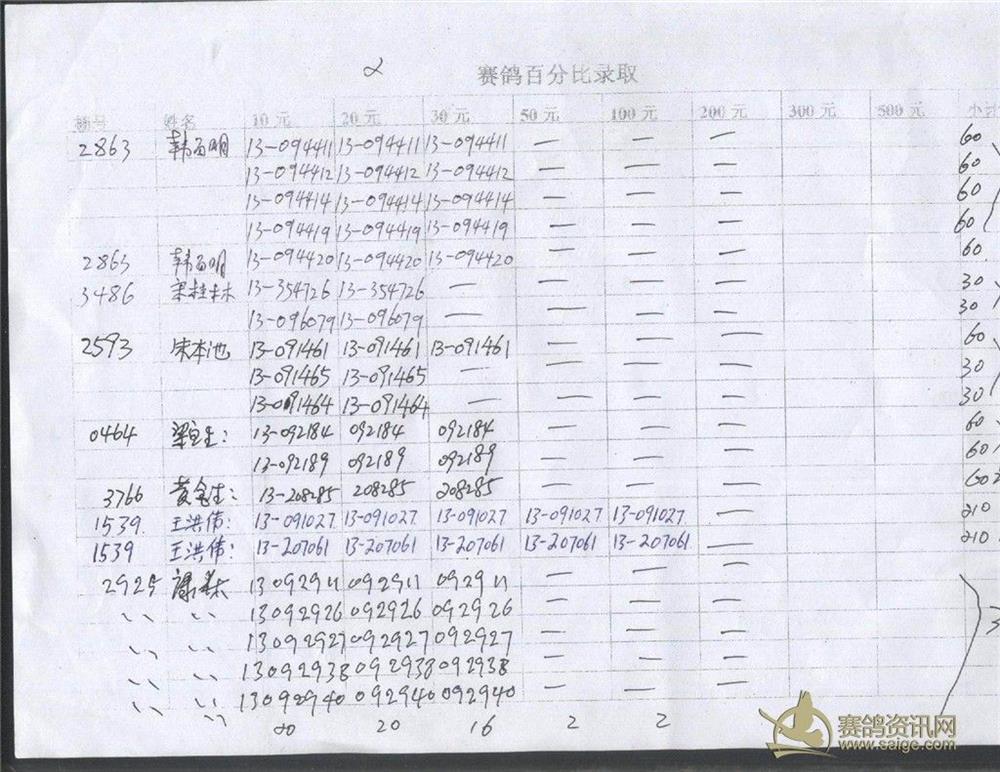 2
赛鸽百分比录取
棚号 姓名 10元 20元 30元 50元 100元 200元 300元 500元 小计
2863 韩百明 13-094411 13-094411 13-094411 — — — 60
13-094412 13-094412 13-094412 — — — 60
13-094414 13-094414 13-094414 — — — 60
13-094419 13-094419 13-094419 — — — 60
2863 韩百明 13-094420 13-094420 13-094420 — — — 60
3486 13-354726 13-354726 — — — — 30
13-096079 13-096079 — — — — 30
2593 宋本池 13-091461 13-091461 13-091461 — — — 60
13-091465 13-091465 — — — — 30
13-091464 13-091464 — — — — 30
0464 13-092184 092184 092184 — — — 60
13-092189 092189 092189 — — — 60
3766 黄金生: 13-208285 208285 208285 — — — 60
1539. 王洪伟: 13-091027 13-091027 13-091027 13-091027 13-091027 — 210
1539 王洪伟: 13-207061 13-207061 13-207061 13-207061 13-207061 — 210
2925 13092911 092911 092911 — — —
〃 〃 13092926 092926 092926 — — —
〃 〃 13092927 092927 092927 — — —
〃 〃 13092938 092938 092938 — — —
〃 〃 13092940 092940 092940 — — —
20 20 16 2 2
赛鸽资讯网
www.saige.com